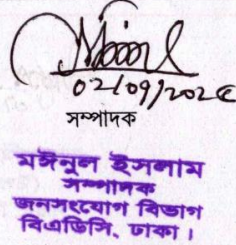 02/09/202৫
সম্পাদক
মঈনুল ইসলাম
সম্পাদক
জনসংযোগ বিভাগ
বিএডিসি, ঢাকা।